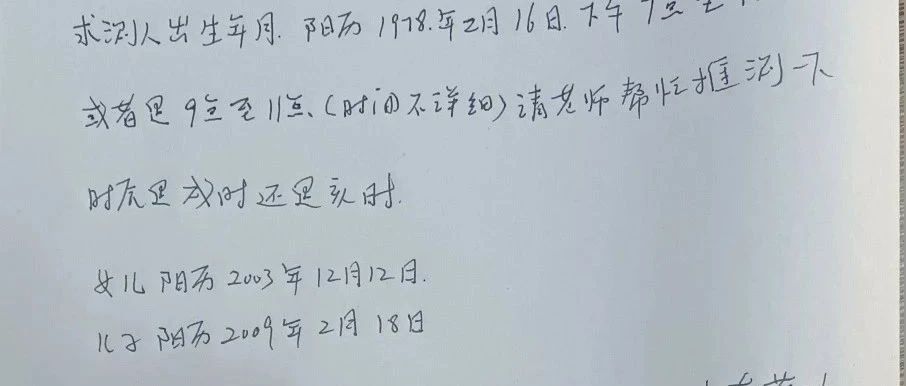 求测人出生年月. 阳历1978.年2月16日.下午7点至
或者是9点至11点.(时间不详细)请老师帮忙推测一下
时辰是戌时还是亥时.
女儿 阳历2003年12月12日.
儿子 阳历2009年2月18日